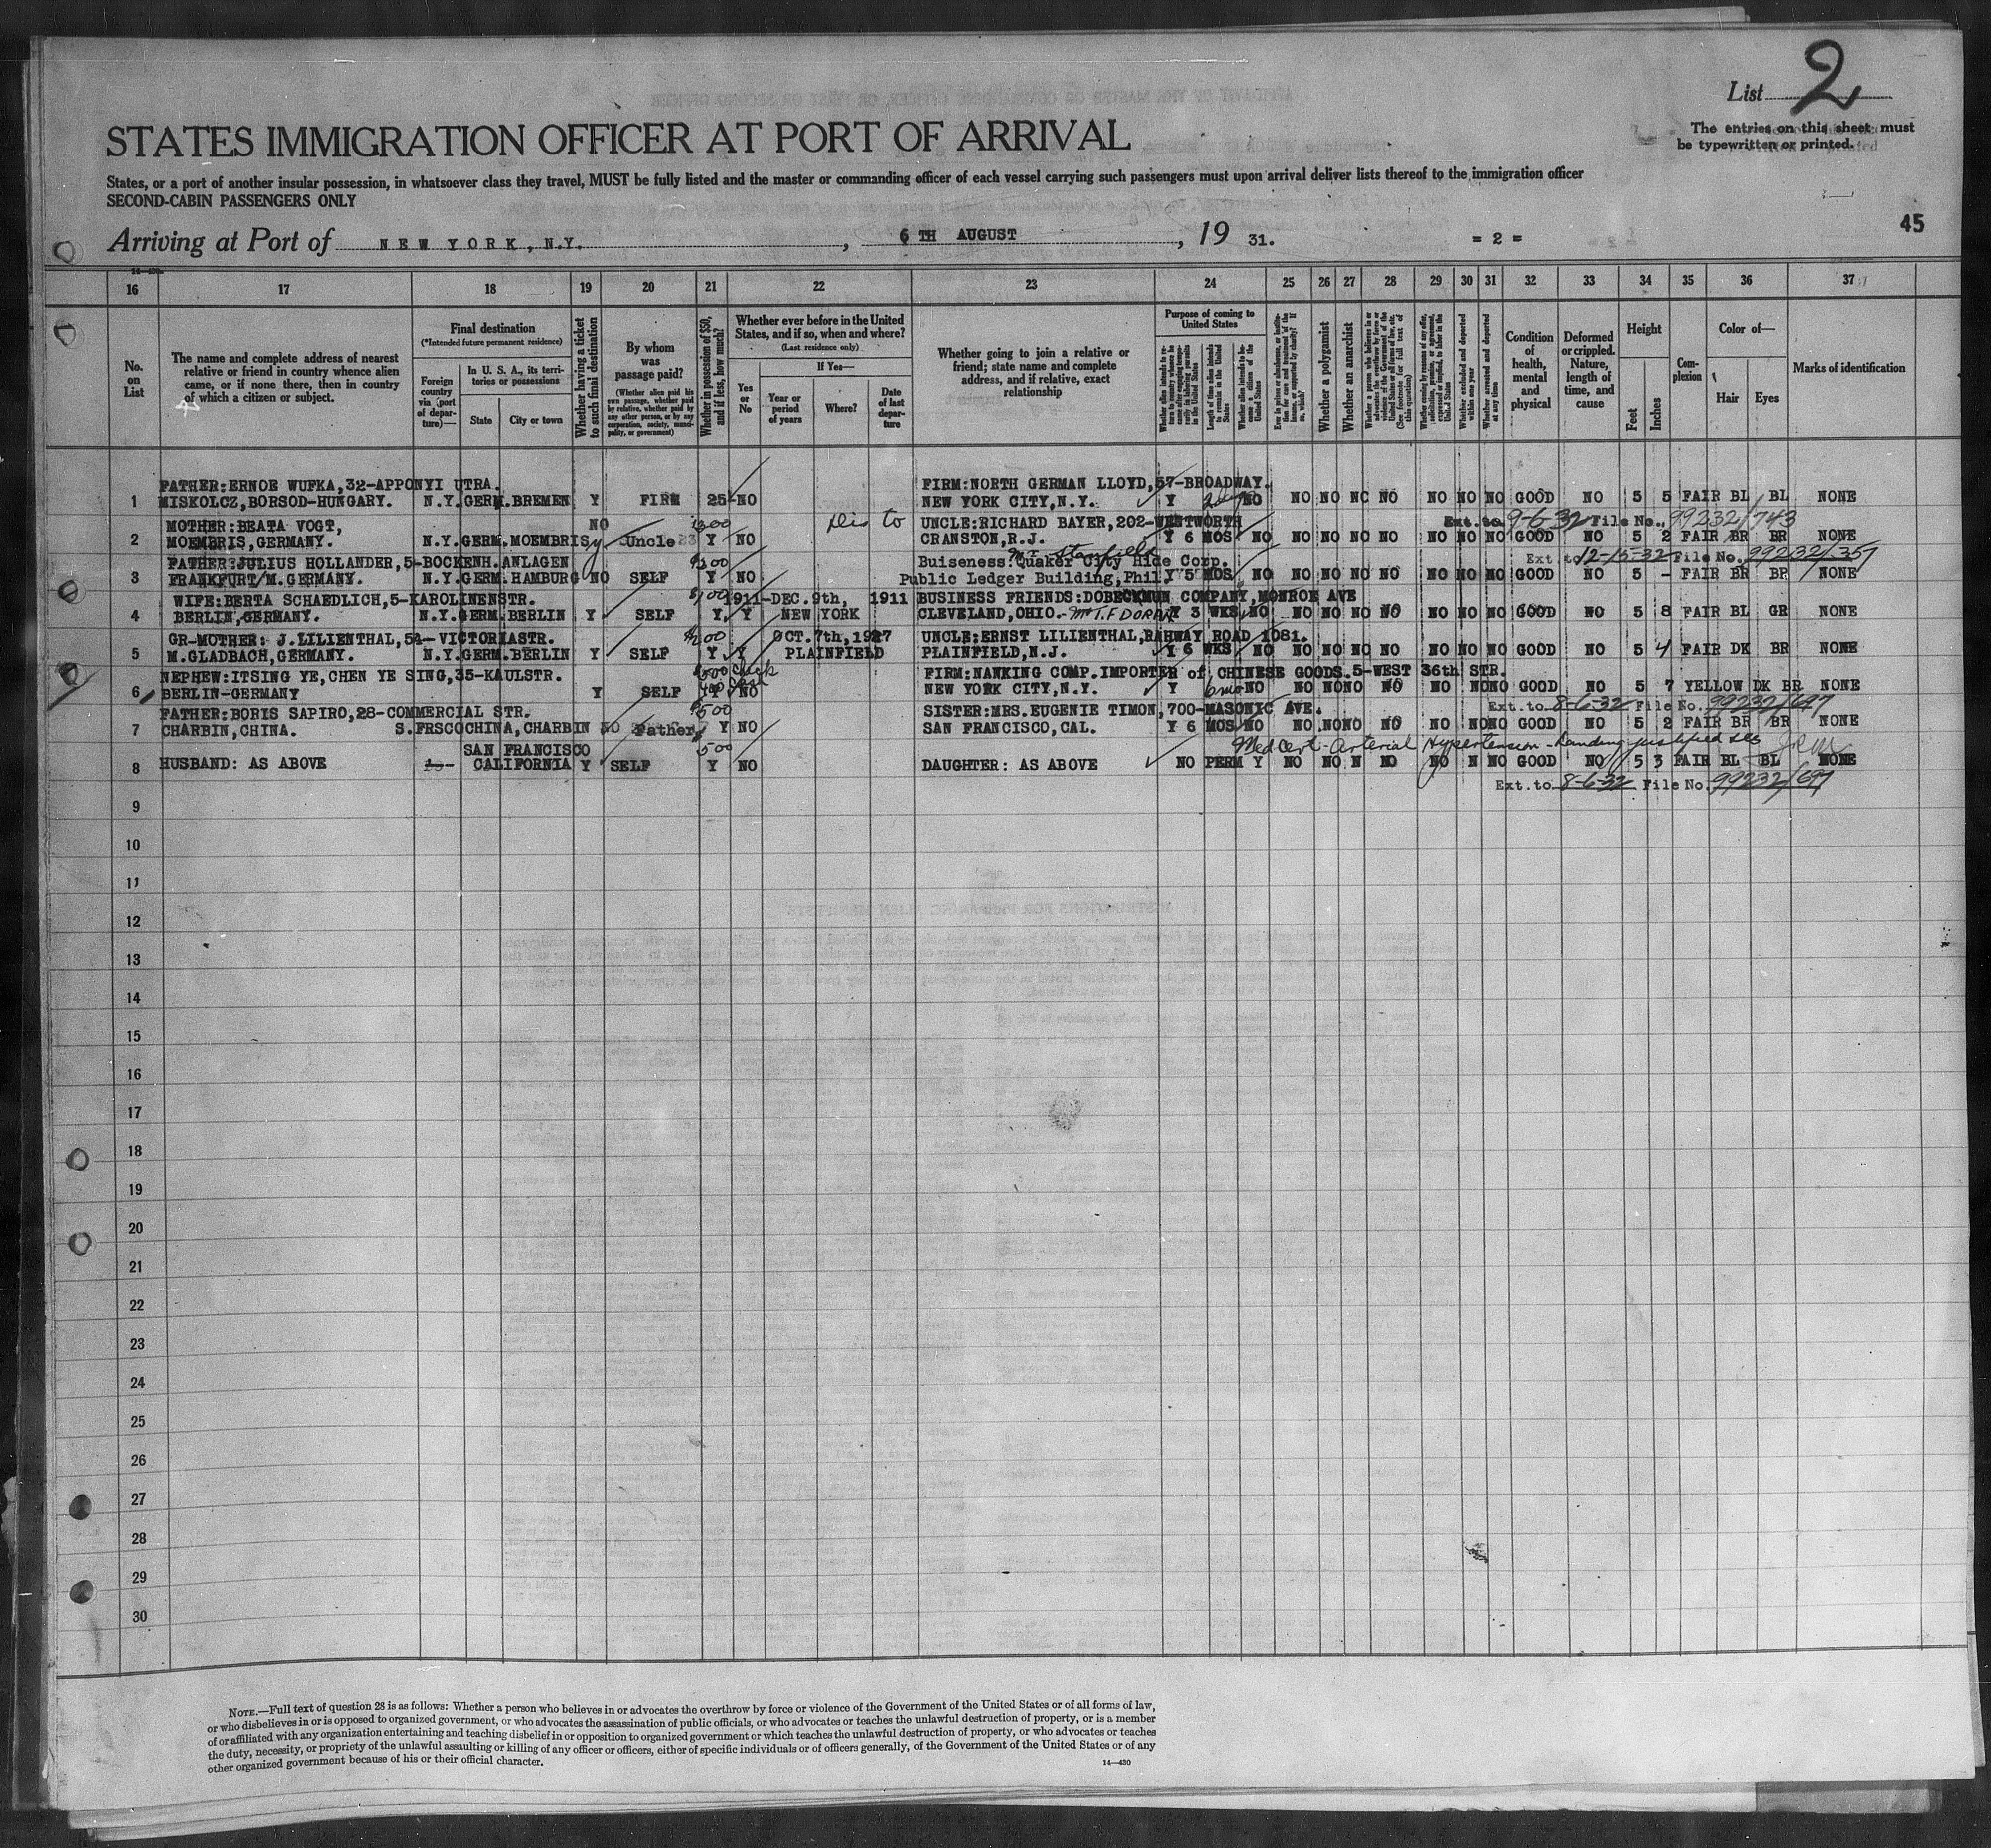 List 2
STATES IMMIGRATION OFFICER AT PORT OF ARRIVAL
The entries on this sheet must
be typewritten or printed.
States, or a port of another insular possession, in whatsoever class they travel, MUST be fully listed and the master or commanding officer of each vessel carrying such passengers must upon arrival deliver lists thereof to the immigration officer
SECOND-CABIN PASSENGERS ONLY
45
Arriving at Port of NEW YORK, N.Y. , 6 TH AUGUST , 19 31. = 2 =
16 17 18 19 20 21 22 23 24 25 26 27 28 29 30 31 32 33 34 35 36 37
No. on List
The name and complete address of nearest relative or friend in country whence alien came, or if none there, then in country of which a citizen or subject.
Final destination
(*Intended future permanent residence)
Foreign country via (port of departure)—
In U. S. A., its territories or possessions
State
City or town
Whether having a ticket to such final destination
By whom was passage paid?
(Whether alien paid his own passage, whether paid by relative, whether paid by any other person, or by any corporation, society, municipality, or government)
Whether in possession of $50, and if less, how much?
Whether ever before in the United States, and if so, when and where?
(Last residence only)
Yes or No
If Yes—
Year or period of years
Where?
Date of last departure
Whether going to join a relative or friend; state name and complete address, and if relative, exact relationship
Purpose of coming to United States
Length of time alien intends to remain in the United States
Whether alien intends to become a citizen of the United States
Whether a polygamist
Whether an anarchist
Whether excluded and deported within one year
Whether arrested and deported at any time
Condition of health, mental and physical
Deformed or crippled. Nature, length of time, and cause
Height
Feet
Inches
Complexion
Color of—
Hair
Eyes
Marks of identification
FATHER:ERNOE WUFKA,32-APPONYI UTRA. FIRM:NORTH GERMAN LLOYD,57-BROADWAY.
1 MISKOLCZ,BORSOD-HUNGARY. N.Y. GERM. BREMEN Y FIRM 25 NO NEW YORK CITY,N.Y. Y NO NO NO NO NO NO NO NO GOOD NO 5 5 FAIR BL BL NONE
MOTHER:BEATA VOGT, NO Dis to UNCLE:RICHARD BAYER,202-WENTWORTH Ext. to 9-6-32 File No. 99232/743
2 MOEMBRIS,GERMANY. N.Y. GERM. MOEMBRIS y Uncle Y NO CRANSTON,R.J. Y 6 MOS NO NO NO NO NO NO NO NO GOOD NO 5 2 FAIR BR BR NONE
FATHER:JULIUS HOLLANDER,5-BOCKENH.ANLAGEN Buiseness:Quaker City Hide Corp. Ext. to 12-15-32 File No. 99232/357
3 FRANKFURT/M.GERMANY. N.Y. GERM. HAMBURG NO SELF Y NO Public Ledger Building,Phil. Y 5 MOS NO NO NO NO NO NO NO NO GOOD NO 5 - FAIR BR BR NONE
WIFE:BERTA SCHAEDLICH,5-KAROLINENSTR. 1911-DEC.9th, 1911 BUSINESS FRIENDS:DOBECKMUN COMPANY,MONROE AVE
4 BERLIN,GERMANY. N.Y. GERM. BERLIN Y SELF Y Y NEW YORK CLEVELAND,OHIO.- Mr T.F DORAN Y 3 WKS NO NO NO NO NO NO NO NO GOOD NO 5 8 FAIR BL GR NONE
GR-MOTHER: J.LILIENTHAL,54-VICTORIASTR. OCT.7th,1927 UNCLE:ERNST LILIENTHAL,RAHWAY ROAD 1081.
5 M.GLADBACH,GERMANY. N.Y. GERM. BERLIN Y SELF Y Y PLAINFIELD PLAINFIELD,N.J. Y 6 WKS NO NO NO NO NO NO NO NO GOOD NO 5 4 FAIR DK BR NONE
NEPHEW:ITSING YE,CHEN YE SING,35-KAULSTR. FIRM:NANKING COMP.IMPORTER of CHINESE GOODS.5-WEST 36th STR.
6 BERLIN-GERMANY Y SELF NO NEW YORK CITY,N.Y. Y 6mo NO NO NO NO NO NO NO NO GOOD NO 5 7 YELLOW DK BR NONE
FATHER:BORIS SAPIRO,28-COMMERCIAL STR. 500 SISTER:MRS.EUGENIE TIMON,700-MASONIC AVE. Ext. to 8-6-32 File No. 99232/697
7 CHARBIN,CHINA. S.FRSCO CHINA,CHARBIN NO Father Y NO SAN FRANCISCO,CAL. Y 6 MOS NO NO NO NO NO NO NO NO GOOD NO 5 2 FAIR BR BR NONE
SAN FRANCISCO 500 Med Cert - Arterial Hypertension - Landing justified
8 HUSBAND: AS ABOVE CALIFORNIA Y SELF Y NO DAUGHTER: AS ABOVE NO PERM Y NO NO N NO NO N NO GOOD NO 5 3 FAIR BL BL NONE
Ext. to 8-6-32 File No. 99232/697
9
10
11
12
13
14
15
16
17
18
19
20
21
22
23
24
25
26
27
28
29
30
NOTE.—Full text of question 28 is as follows: Whether a person who believes in or advocates the overthrow by force or violence of the Government of the United States or of all forms of law,
or who disbelieves in or is opposed to organized government, or who advocates the assassination of public officials, or who advocates or teaches the unlawful destruction of property, or is a member
of or affiliated with any organization entertaining and teaching disbelief in or opposition to organized government or which teaches the unlawful destruction of property, or who advocates or teaches
the duty, necessity, or propriety of the unlawful assaulting or killing of any officer or officers, either of specific individuals or of officers generally, of the Government of the United States or of any
other organized government because of his or their official character.
14—430